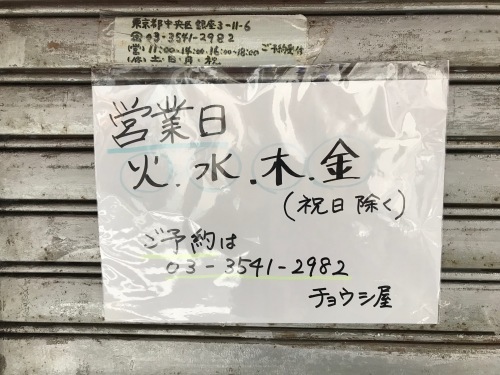 東京都中央区銀座3-11-6
☎03-3541-2982
(営)11:00-14:00.16:00-18:00 ご予約受付
(休)土・日・月・祝
営業日
火.水.木.金
(祝日除く)
ご予約は
03-3541-2982
チョウシ屋